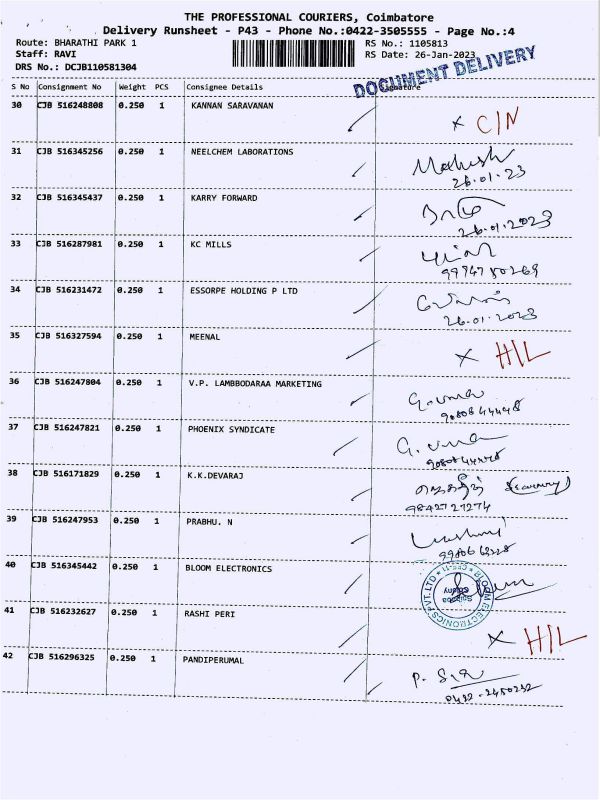 THE PROFESSIONAL COURIERS, Coimbatore
Delivery Runsheet - P43 - Phone No.:0422-3505555 - Page No.:4
Route: BHARATHI PARK 1 RS No.: 1105813
Staff: RAVI RS Date: 26-Jan-2023
DRS No.: DCJB110581304
DOCUMENT DELIVERY
S No Consignment No Weight PCS Consignee Details Signature
30 CJB 516248808 0.250 1 KANNAN SARAVANAN
x C/N
31 CJB 516345256 0.250 1 NEELCHEM LABORATIONS
Mahesh
26.01.23
32 CJB 516345437 0.250 1 KARRY FORWARD
26.01.2023
33 CJB 516287981 0.250 1 KC MILLS
9994780269
34 CJB 516231472 0.250 1 ESSORPE HOLDING P LTD
26.01.2023
35 CJB 516327594 0.250 1 MEENAL
x H/L
36 CJB 516247804 0.250 1 V.P. LAMBBODARAA MARKETING
G. uma
37 CJB 516247821 0.250 1 PHOENIX SYNDICATE
G. uma
38 CJB 516171829 0.250 1 K.K.DEVARAJ
9842727274
39 CJB 516247953 0.250 1 PRABHU. N
40 CJB 516345442 0.250 1 BLOOM ELECTRONICS
BLOOM ELECTRONICS PVT. LTD
41 CJB 516232627 0.250 1 RASHI PERI
x H/L
42 CJB 516296325 0.250 1 PANDIPERUMAL
0422-2450232